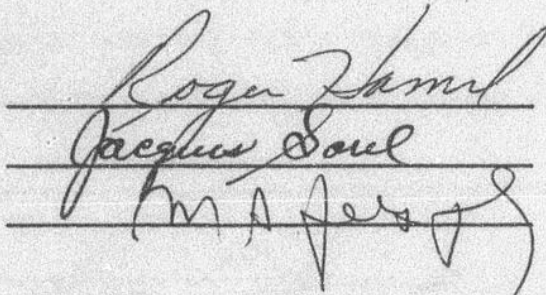 Roger Hamel
Jacques Sorel
M A